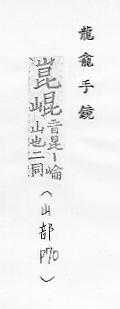 龍龕手鏡
崑崐音昆丨崘
山也二同
(山部
P70)